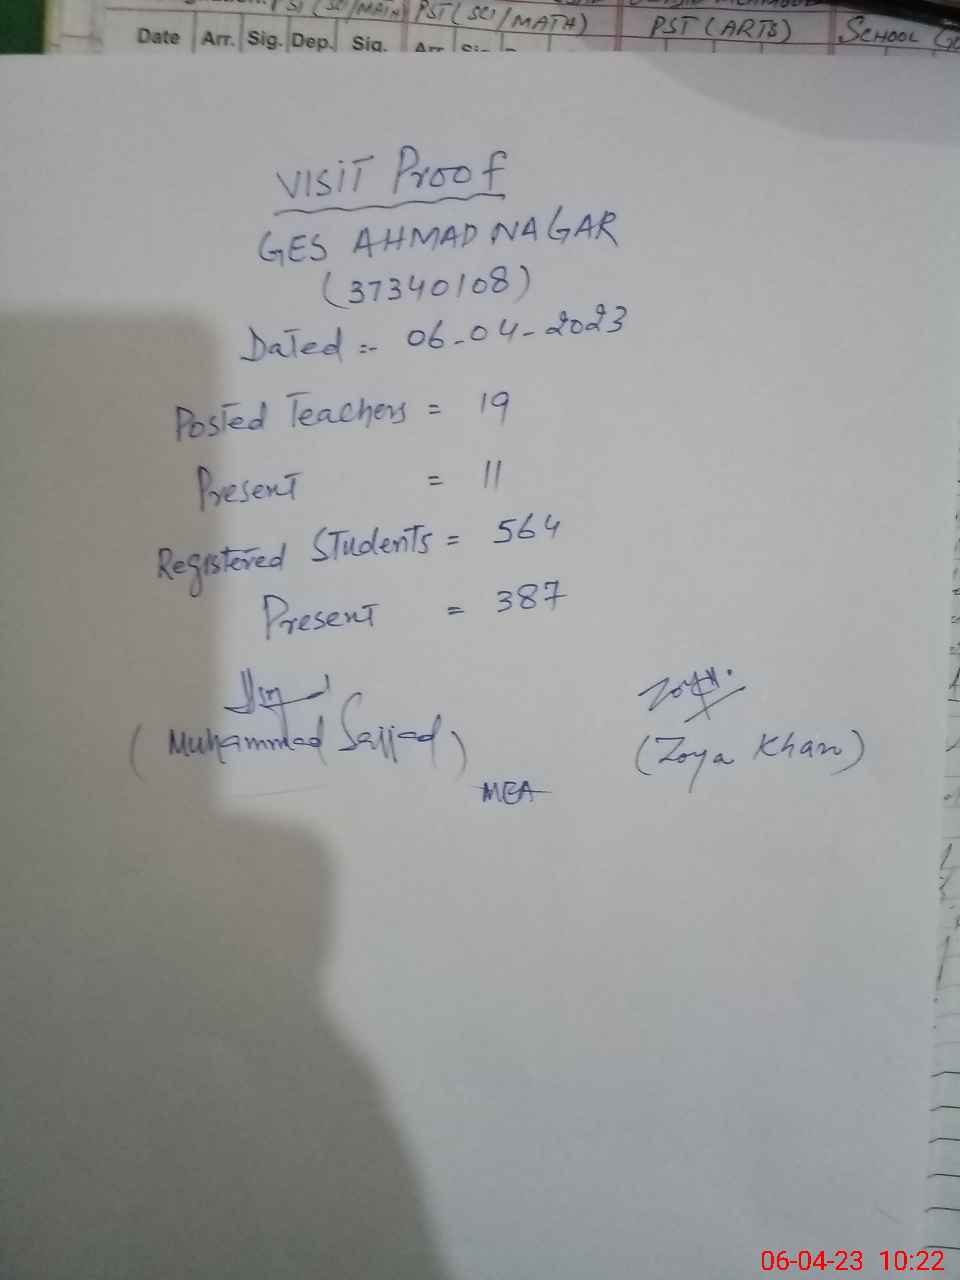 PST (SCI/MATH) PST (SCI/MATH) PST (ARTS) SCHOOL
Date Arr. Sig. Dep. Sig. Arr Sig
VISIT Proof
GES AHMAD NAGAR
(37340108)
Dated :- 06-04-2023
Posted Teachers = 19
Present = 11
Registered Students = 564
Present = 387
(Muhammad Sajjad)
(Zoya Khan)
MEA
06-04-23 10:22